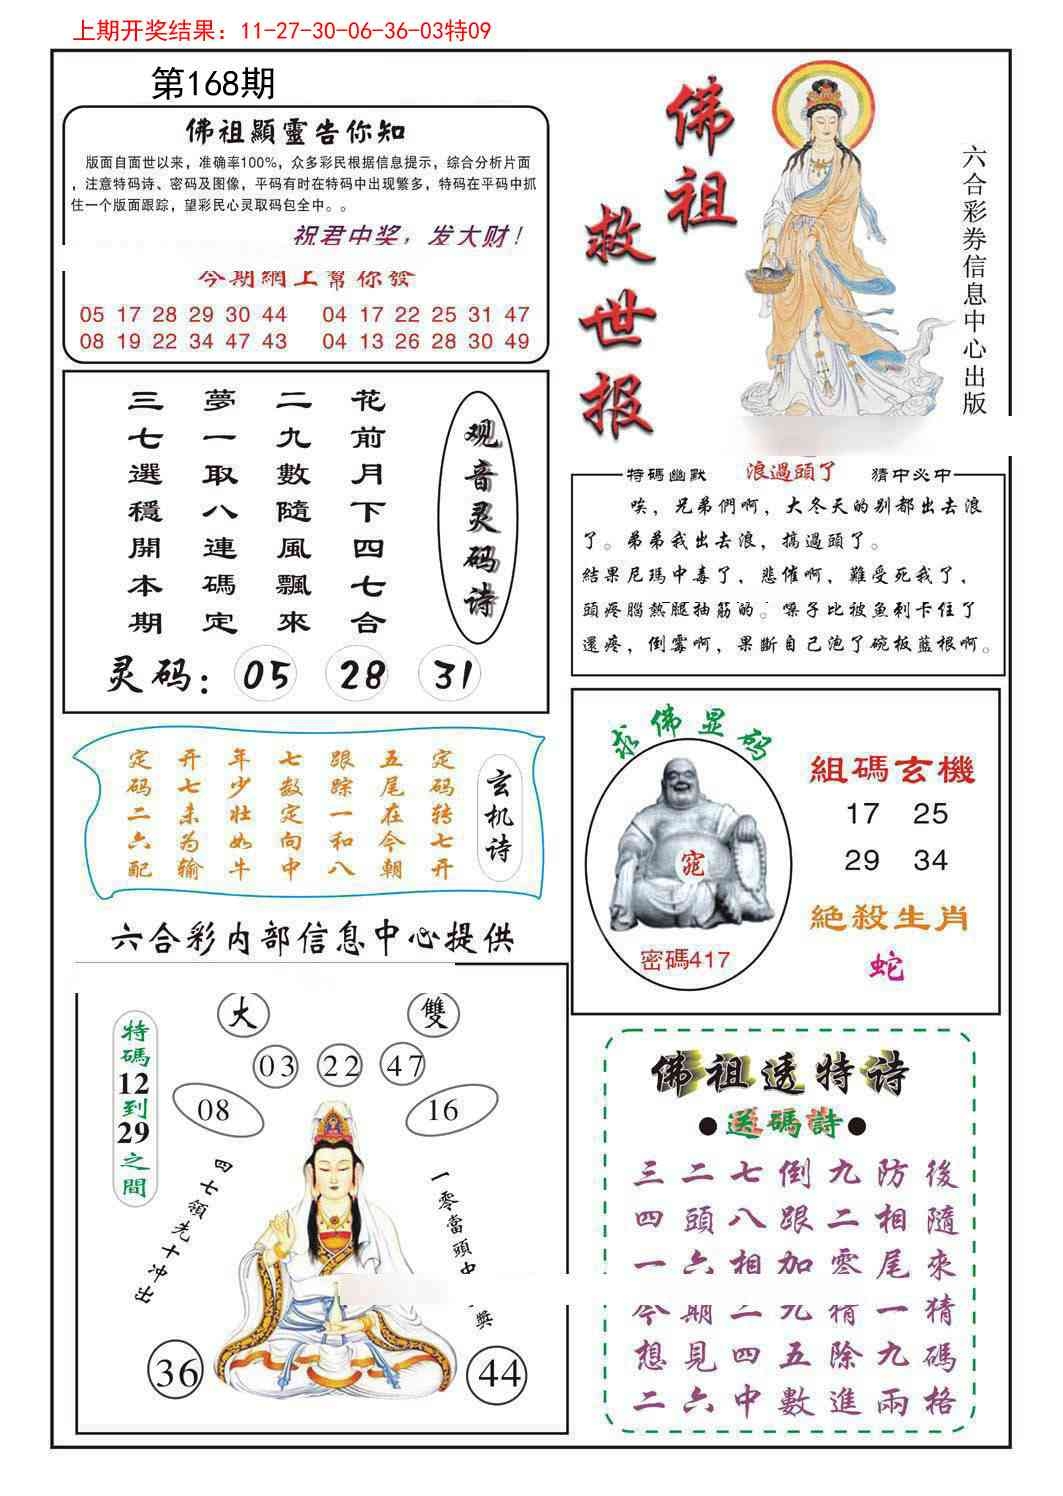 上期开奖结果：11-27-30-06-36-03特09
第168期
佛祖顯靈告你知
版面自面世以来，准确率100%，众多彩民根据信息提示，综合分析片面
，注意特码诗、密码及图像，平码有时在特码中出现繁多，特码在平码中抓
住一个版面跟踪，望彩民心灵取码包全中。。
祝君中奖，发大财！
今期網上幫你發
05 17 28 29 30 44 04 17 22 25 31 47
08 19 22 34 47 43 04 13 26 28 30 49
佛祖
救世报
六合彩券信息中心出版
观音灵码诗
花前月下四七合
二九數隨風飄來
夢一取八連碼定
三七選穩開本期
灵码：05 28 31
特碼幽默 浪過頭了 猜中必中
唉，兄弟們啊，大冬天的别都出去浪
了。弟弟我出去浪，搞過頭了。
結果尼瑪中毒了，悲催啊，難受死我了，
頭疼腦熱腿抽筋的。嗓子比被魚刺卡住了
還疼，倒霉啊，果斷自己泡了碗板藍根啊。
玄机诗
定码转七开
五尾在今朝
跟踪一和八
七数定向中
年少壮如牛
开七未为输
定码二六配
求佛显码
窕
密碼417
組碼玄機
17 25
29 34
絶殺生肖
蛇
六合彩内部信息中心提供
大 雙
03 22 47
08 16
特碼12到29之間
四七領先十冲出
一零當頭中獎
36 44
佛祖透特诗
●送碼詩●
三二七倒九防後
四頭八跟二相隨
一六相加零尾來
今期二九精一猜
想見四五除九碼
二六中數進兩格